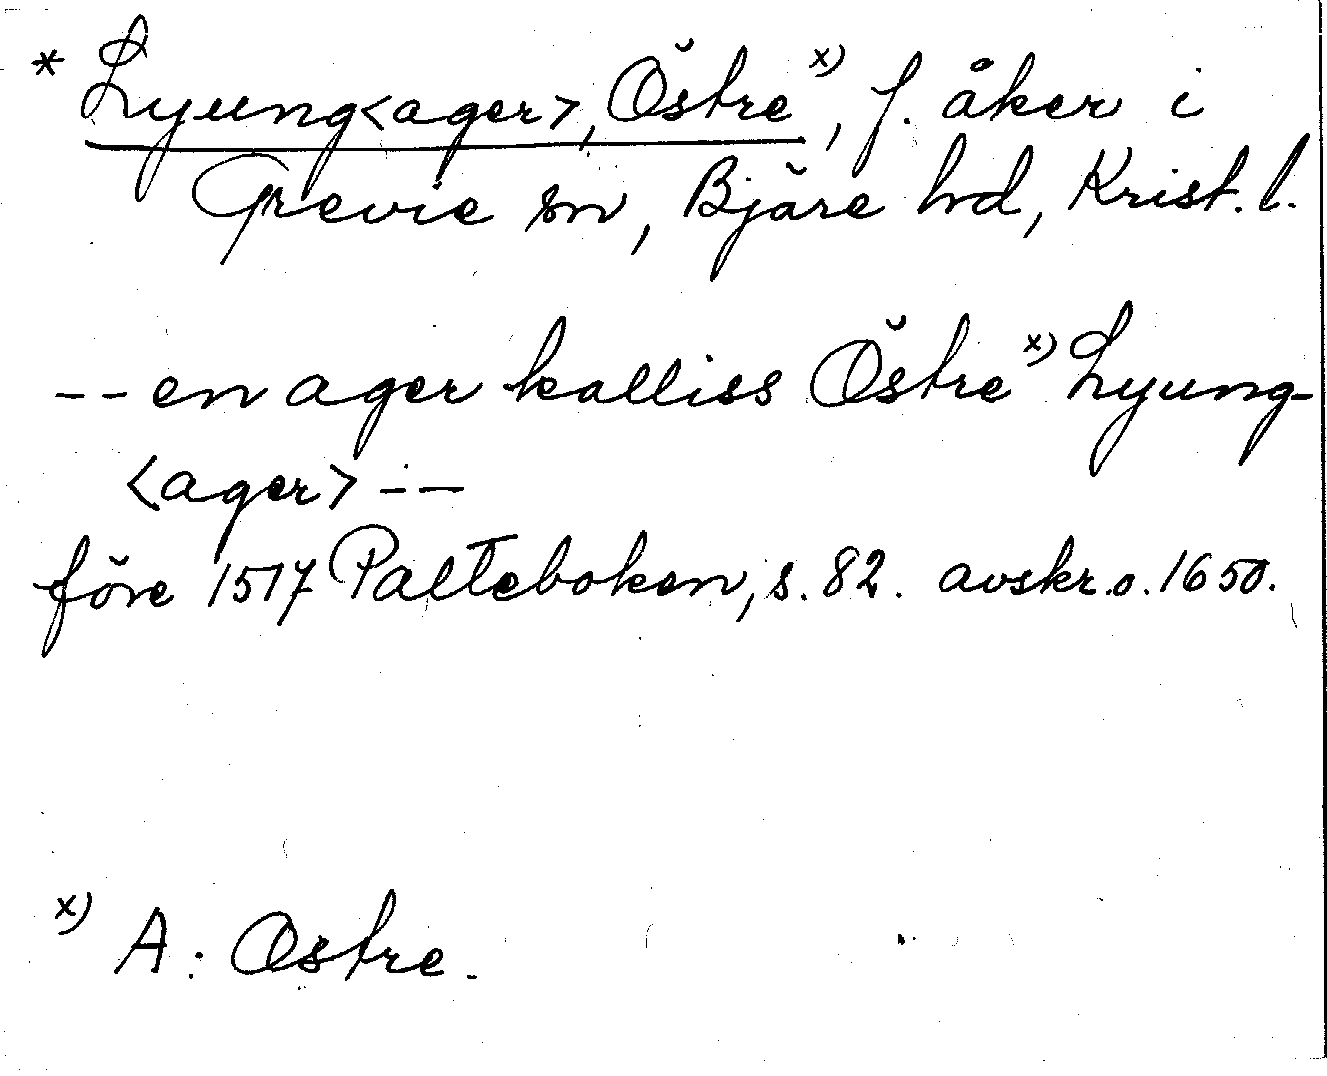 * Lyung<ager>, Östre x), f. åker i
Grevie sn, Bjäre hd, Krist. l.
-- en ager kalliss Östre x) Lyung-
<ager> --
före 1517 Palteboken, s. 82. avskr. o. 1650.
x) A: Ostre.